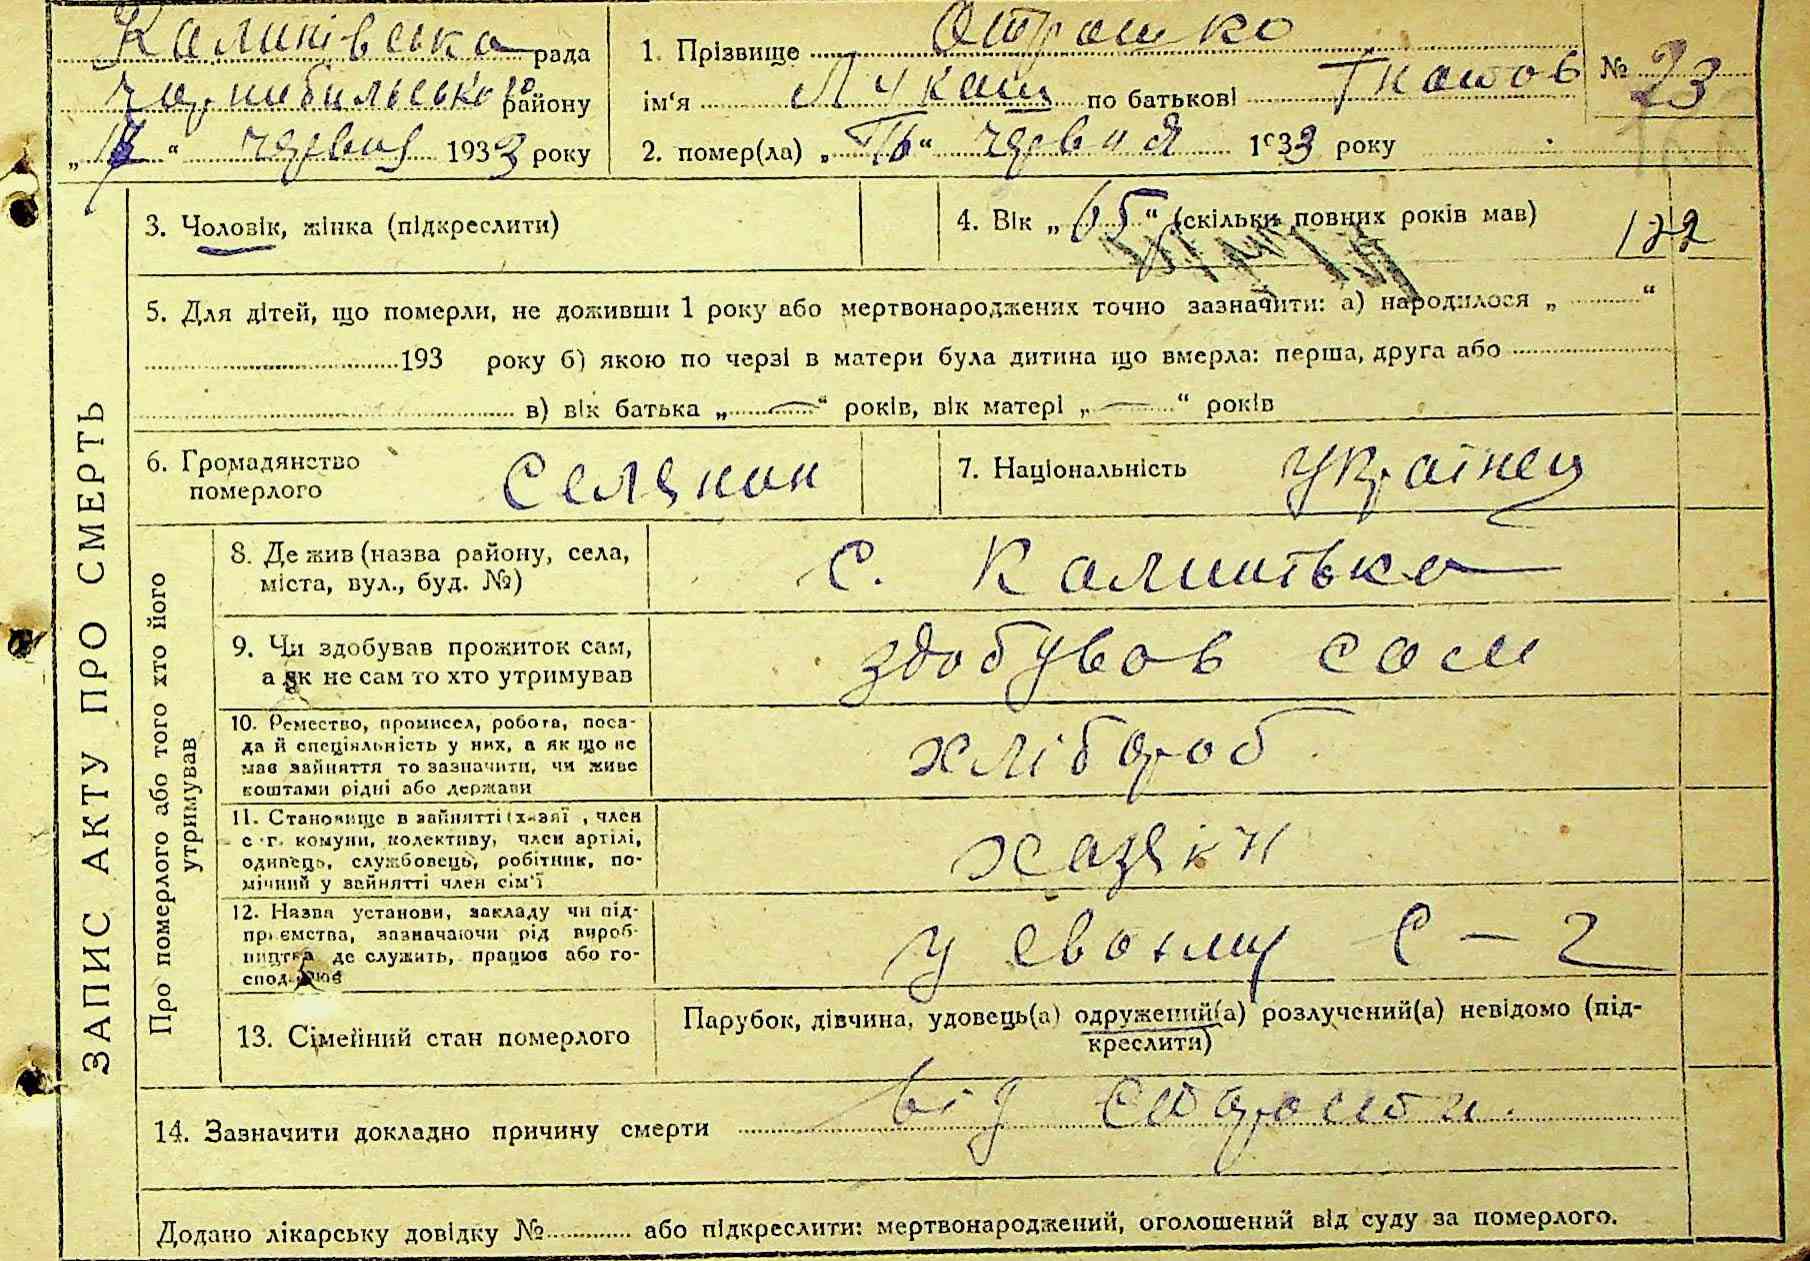 Калинівська рада
Чорнобильського району
„17“ червня 1933 року
1. Прізвище Отрошко
ім‘я Лукаш по батькові
№ 23
2. помер(ла) „16“ червня 1933 року
3. Чоловік, жінка (підкреслити)
4. Вік „65“ (скільки повних років мав)
122
5. Для дітей, що померли, не доживши 1 року або мертвонароджених точно зазначити: а) народилося „ “
193 року б) якою по черзі в матери була дитина що вмерла: перша, друга або
в) вік батька „—“ років, вік матері „—“ років
6. Громадянство
померлого
Селянин
7. Національність Українец
ЗАПИС АКТУ ПРО СМЕРТЬ
Про померлого або того хто його
утримував
8. Де жив (назва району, села,
міста, вул., буд. №)
с. Калинівка
9. Чи здобував прожиток сам,
а як не сам то хто утримував
здобував сам
10. Ремество, промисел, робота, поса-
да й спеціяльність у них, а як що не
має зайняття то зазначити, чи живе
коштами рідні або держави
хлібороб
11. Становище в зайнятті (х-зяї , член
с-г. комуни, колективу, член артілі,
одинець, службовець, робітник, по-
мічний у зайнятті член сім‘ї
хазяїн
12. Назва установи, закладу чи під-
приємства, зазначаючи рід вироб-
ництва де служить, працює або го-
сподарює
у своєму С – Г
13. Сімейний стан померлого
Парубок, дівчина, удовець(а) одружений(а) розлучений(а) невідомо (під-
креслити)
14. Зазначити докладно причину смерти від старости.
Додано лікарську довідку № або підкреслити: мертвонароджений, оголошений від суду за померлого.